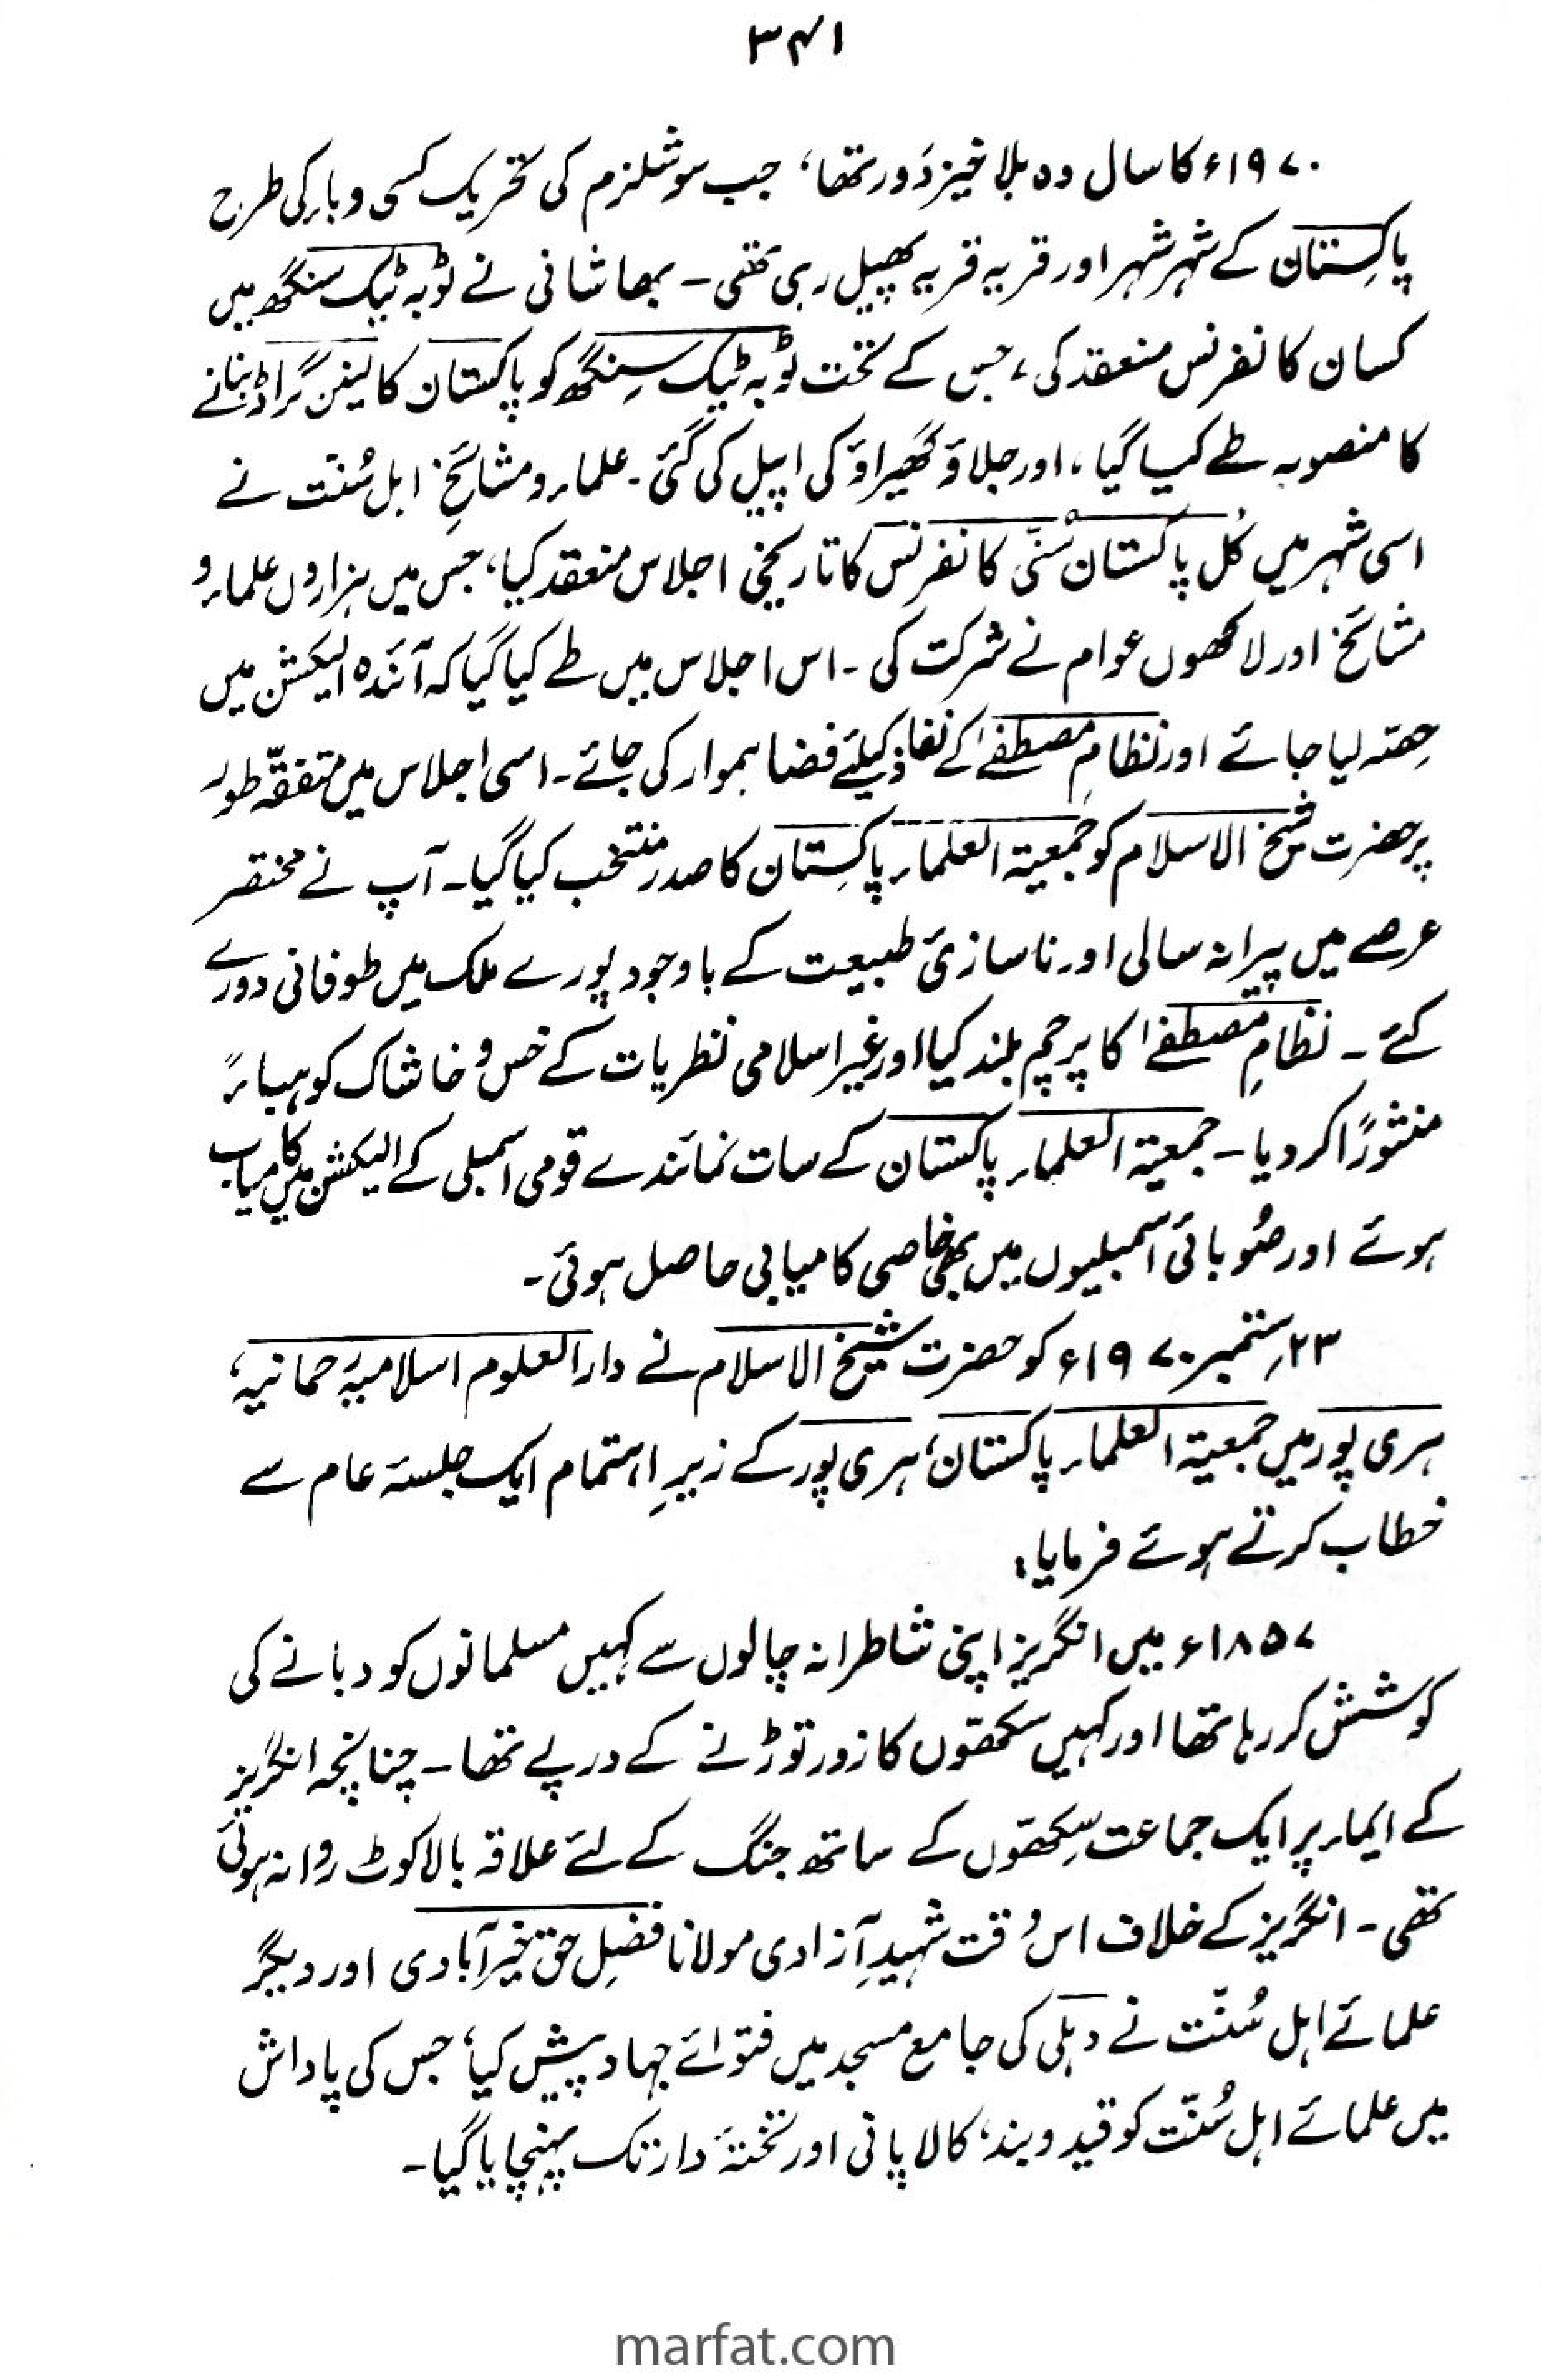 ۳۴۱
۱۹۷۰ء کا سال وہ بلا خیز دَور تھا، جب سوشلزم کی تحریک کسی وبا کی طرح
پاکِستان کے شہر شہر اور قریہ قریہ پھیل رہی تھی۔ بھاشانی نے ٹوبہ ٹیک سنگھ میں
کسان کانفرنس منعقد کی، جس کے تحت ٹوبہ ٹیک سِنگھ کو پاکِستان کا لینن گراڈ بنانے
کا منصوبہ طے کیا گیا، اور جلاؤ گھیراؤ کی اپیل کی گئی۔ علماء و مشائخِ اہل سُنّت نے
اسی شہر میں کُل پاکستان سُنّی کانفرنس کا تاریخی اجلاس منعقد کیا، جس میں ہزاروں علماء و
مشائخ اور لاکھوں عوام نے شرکت کی۔ اس اجلاس میں طے کیا گیا کہ آئندہ الیکشن میں
حِصّہ لیا جائے اور نظامِ مصطفےٰ کے نفاذ کیلئے فضا ہموار کی جائے۔ اسی اجلاس میں متفقہّ طور
پر حضرت شیخ الاسلام کو جمعیۃ العلماء پاکِستان کا صدر منتخب کیا گیا۔ آپ نے مختصر
عرصے میں پیرانہ سالی اور ناسازئ طبیعت کے باوجود پورے ملک میں طوفانی دورے
کئے۔ نظامِ مصطفےٰ کا پرچم بلند کیا اور غیر اسلامی نظریات کے خس و خاشاک کو ہباءً
منثورًا کر دیا۔ جمعیۃ العلماء پاکستان کے سات نمائندے قومی اسمبلی کے الیکشن میں کامیاب
ہوئے اور صُوبائی اسمبلیوں میں بھی خاصی کامیابی حاصل ہوئی۔
۲۳؍ستمبر ۱۹۷۰ء کو حضرت شیخ الاسلام نے دارالعلوم اسلامیہ رحمانیہ،
ہری پور میں جمعیۃ العلماء پاکستان، ہری پور کے زیرِ اہتمام ایک جلسۂ عام سے
خطاب کرتے ہوئے فرمایا:
۱۸۵۷ء میں انگریز اپنی شاطرانہ چالوں سے کہیں مسلمانوں کو دبانے کی
کوشش کر رہا تھا اور کہیں سکھّوں کا زور توڑنے کے درپے تھا۔ چنانچہ انگریز
کے ایماء پر ایک جماعت سِکھّوں کے ساتھ جنگ کے لئے علاقہ بالاکوٹ روانہ ہوئی
تھی۔ انگریز کے خلاف اس وقت شہیدِ آزادی مولانا فضلِ حق خیرآبادی اور دیگر
علمائے اہل سُنّت نے دہلی کی جامع مسجد میں فتوائے جہاد پیش کیا، جس کی پاداش
میں علمائے اہل سُنّت کو قید و بند، کالا پانی اور تختۂ دار تک پہنچایا گیا۔
marfat.com